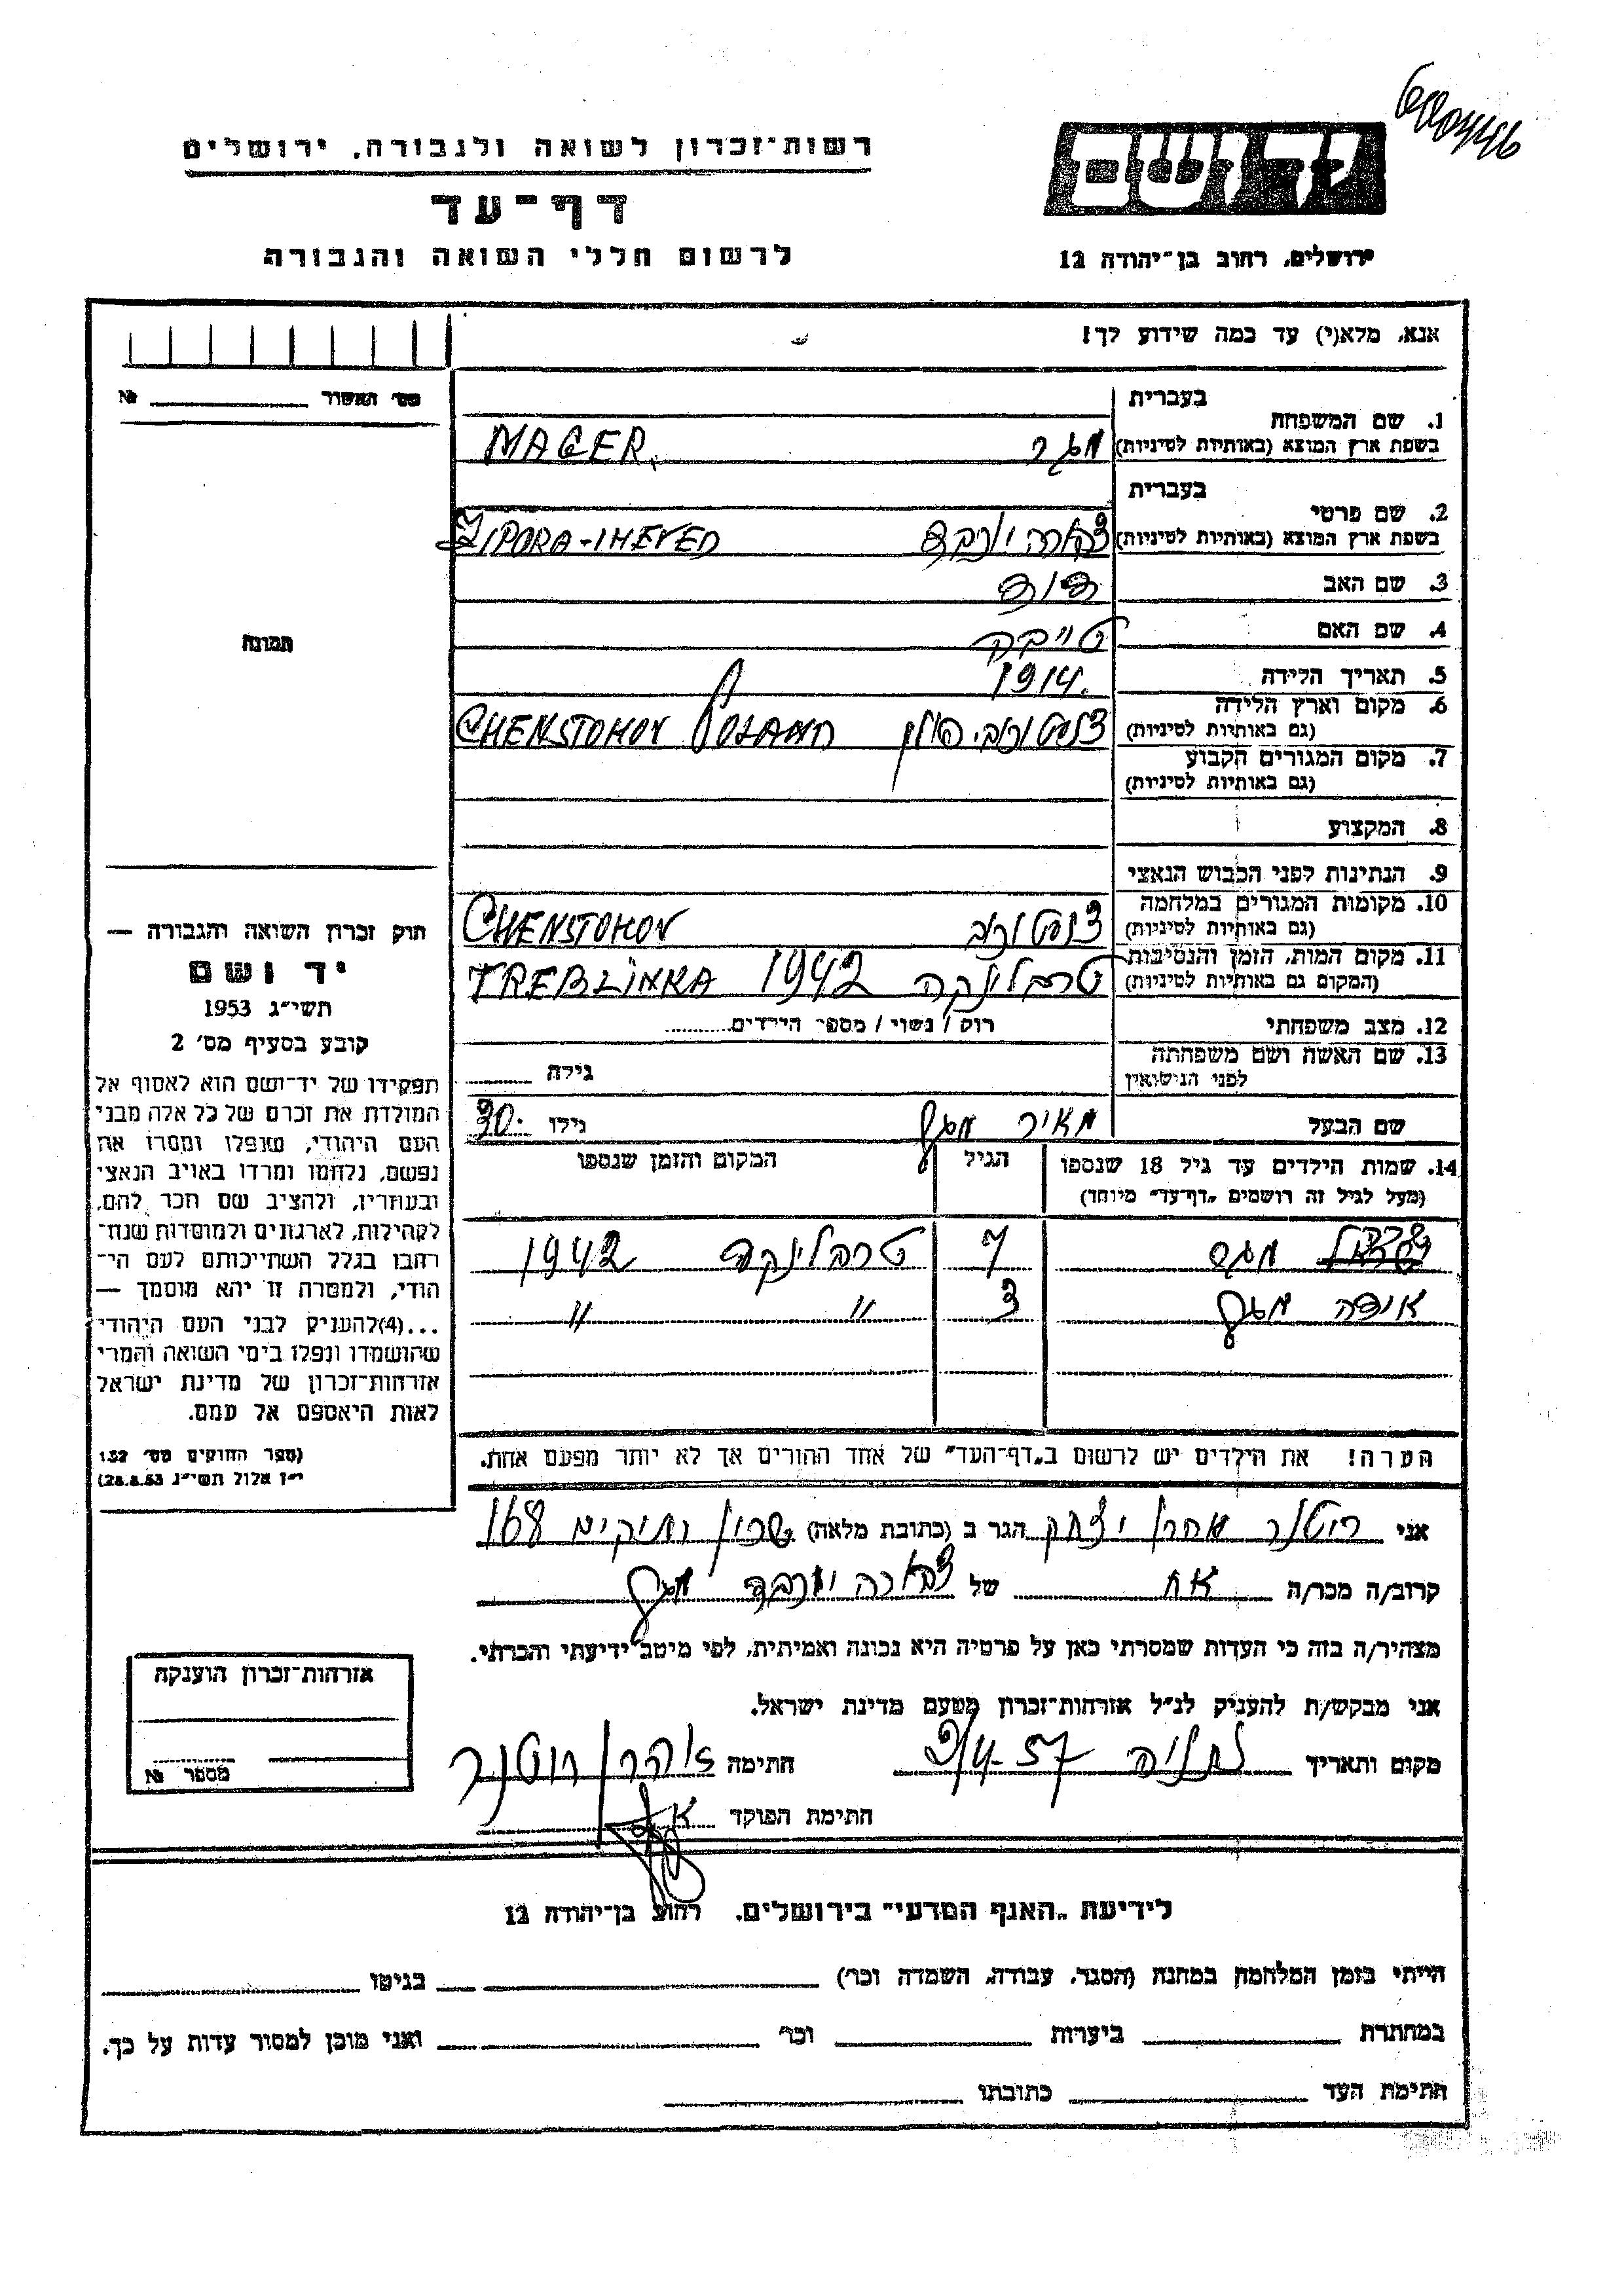 רשות־זכרון לשואה ולגבורה, ירושלים
דף־עד
לרשום חללי השואה והגבורה
יד ושם
ירושלים, רחוב בן־יהודה 12
אנא, מלא(י) עד כמה שידוע לך!
מס׳ האשור № 
בעברית
1. שם המשפחה
בשפת ארץ המוצא (באותיות לטיניות) מגר MAGER
בעברית
2. שם פרטי
בשפת ארץ המוצא (באותיות לטיניות) צפורה יוכבד ZIPORA-IHEVED
3. שם האב דוד
4. שם האם טייבה
5. תאריך הלידה 1914.
6. מקום וארץ הלידה
(גם באותיות לטיניות) צנסטוכוב. פולין CHENSTOHOV POLAND
7. מקום המגורים הקבוע
(גם באותיות לטיניות)
8. המקצוע
9. הנתינות לפני הכבוש הנאצי
10. מקומות המגורים במלחמה
(גם באותיות לטיניות) צנסטוכוב CHENSTOHOV
11. מקום המות, הזמן והנסיבות
(המקום גם באותיות לטיניות) טרבלינקה 1942 TREBLINKA
12. מצב משפחתי רוק / נשוי / מספר הילדים
13. שם האשה ושם משפחתה
לפני הנישואין גילה
שם הבעל מאיר מגר גילו 30.
14. שמות הילדים עד גיל 18 שנספו
(מעל לגיל זה רושמים „דף־עד״ מיוחד) הגיל המקום והזמן שנספו
מגר 7 טרבלינקה 1942
מגר 3 " "
הערה! את הילדים יש לרשום ב„דף־העד״ של אחד ההורים אך לא יותר מפעם אחת.
תמונה
חוק זכרון השואה והגבורה —
יד ושם
תשי״ג 1953
קובע בסעיף מס׳ 2
תפקידו של יד־ושם הוא לאסוף אל
המולדת את זכרם של כל אלה מבני
העם היהודי, שנפלו ומסרו את
נפשם, נלחמו ומרדו באויב הנאצי
ובעוזריו, ולהציב שם וזכר להם,
לקהילות, לארגונים ולמוסדות שנח־
רבו בגלל השתייכותם לעם הי־
הודי, ולמטרה זו יהא מוסמך —
...(4)להעניק לבני העם היהודי
שהושמדו ונפלו בימי השואה והמרי
אזרחות־זכרון של מדינת ישראל
לאות היאספם אל עמם.
(ספר החוקים מס׳ 132
י״ז אלול תשי״ג 28.8.53)
אני אהרן יצחק הגר ב (כתובת מלאה) ותיקים 168
קרוב/ה מכר/ה אח של צפורה יוכבד מגר
מצהיר/ה בזה כי העדות שמסרתי כאן על פרטיה היא נכונה ואמיתית, לפי מיטב ידיעתי והכרתי.
אני מבקש/ת להעניק לנ״ל אזרחות־זכרון מטעם מדינת ישראל.
מקום ותאריך נתניה 9/4-57 חתימה אהרן
חתימת הפוקד
אזרחות־זכרון הוענקה
מספר №
לידיעת „האגף המדעי״ בירושלים. רחוב בן־יהודה 12
הייתי בזמן המלחמה במחנה (הסגר, עבודה, השמדה וכו׳) בגיטו
במחתרת ביערות וכו׳ ואני מוכן למסור עדות על כך.
חתימת העד כתובתו